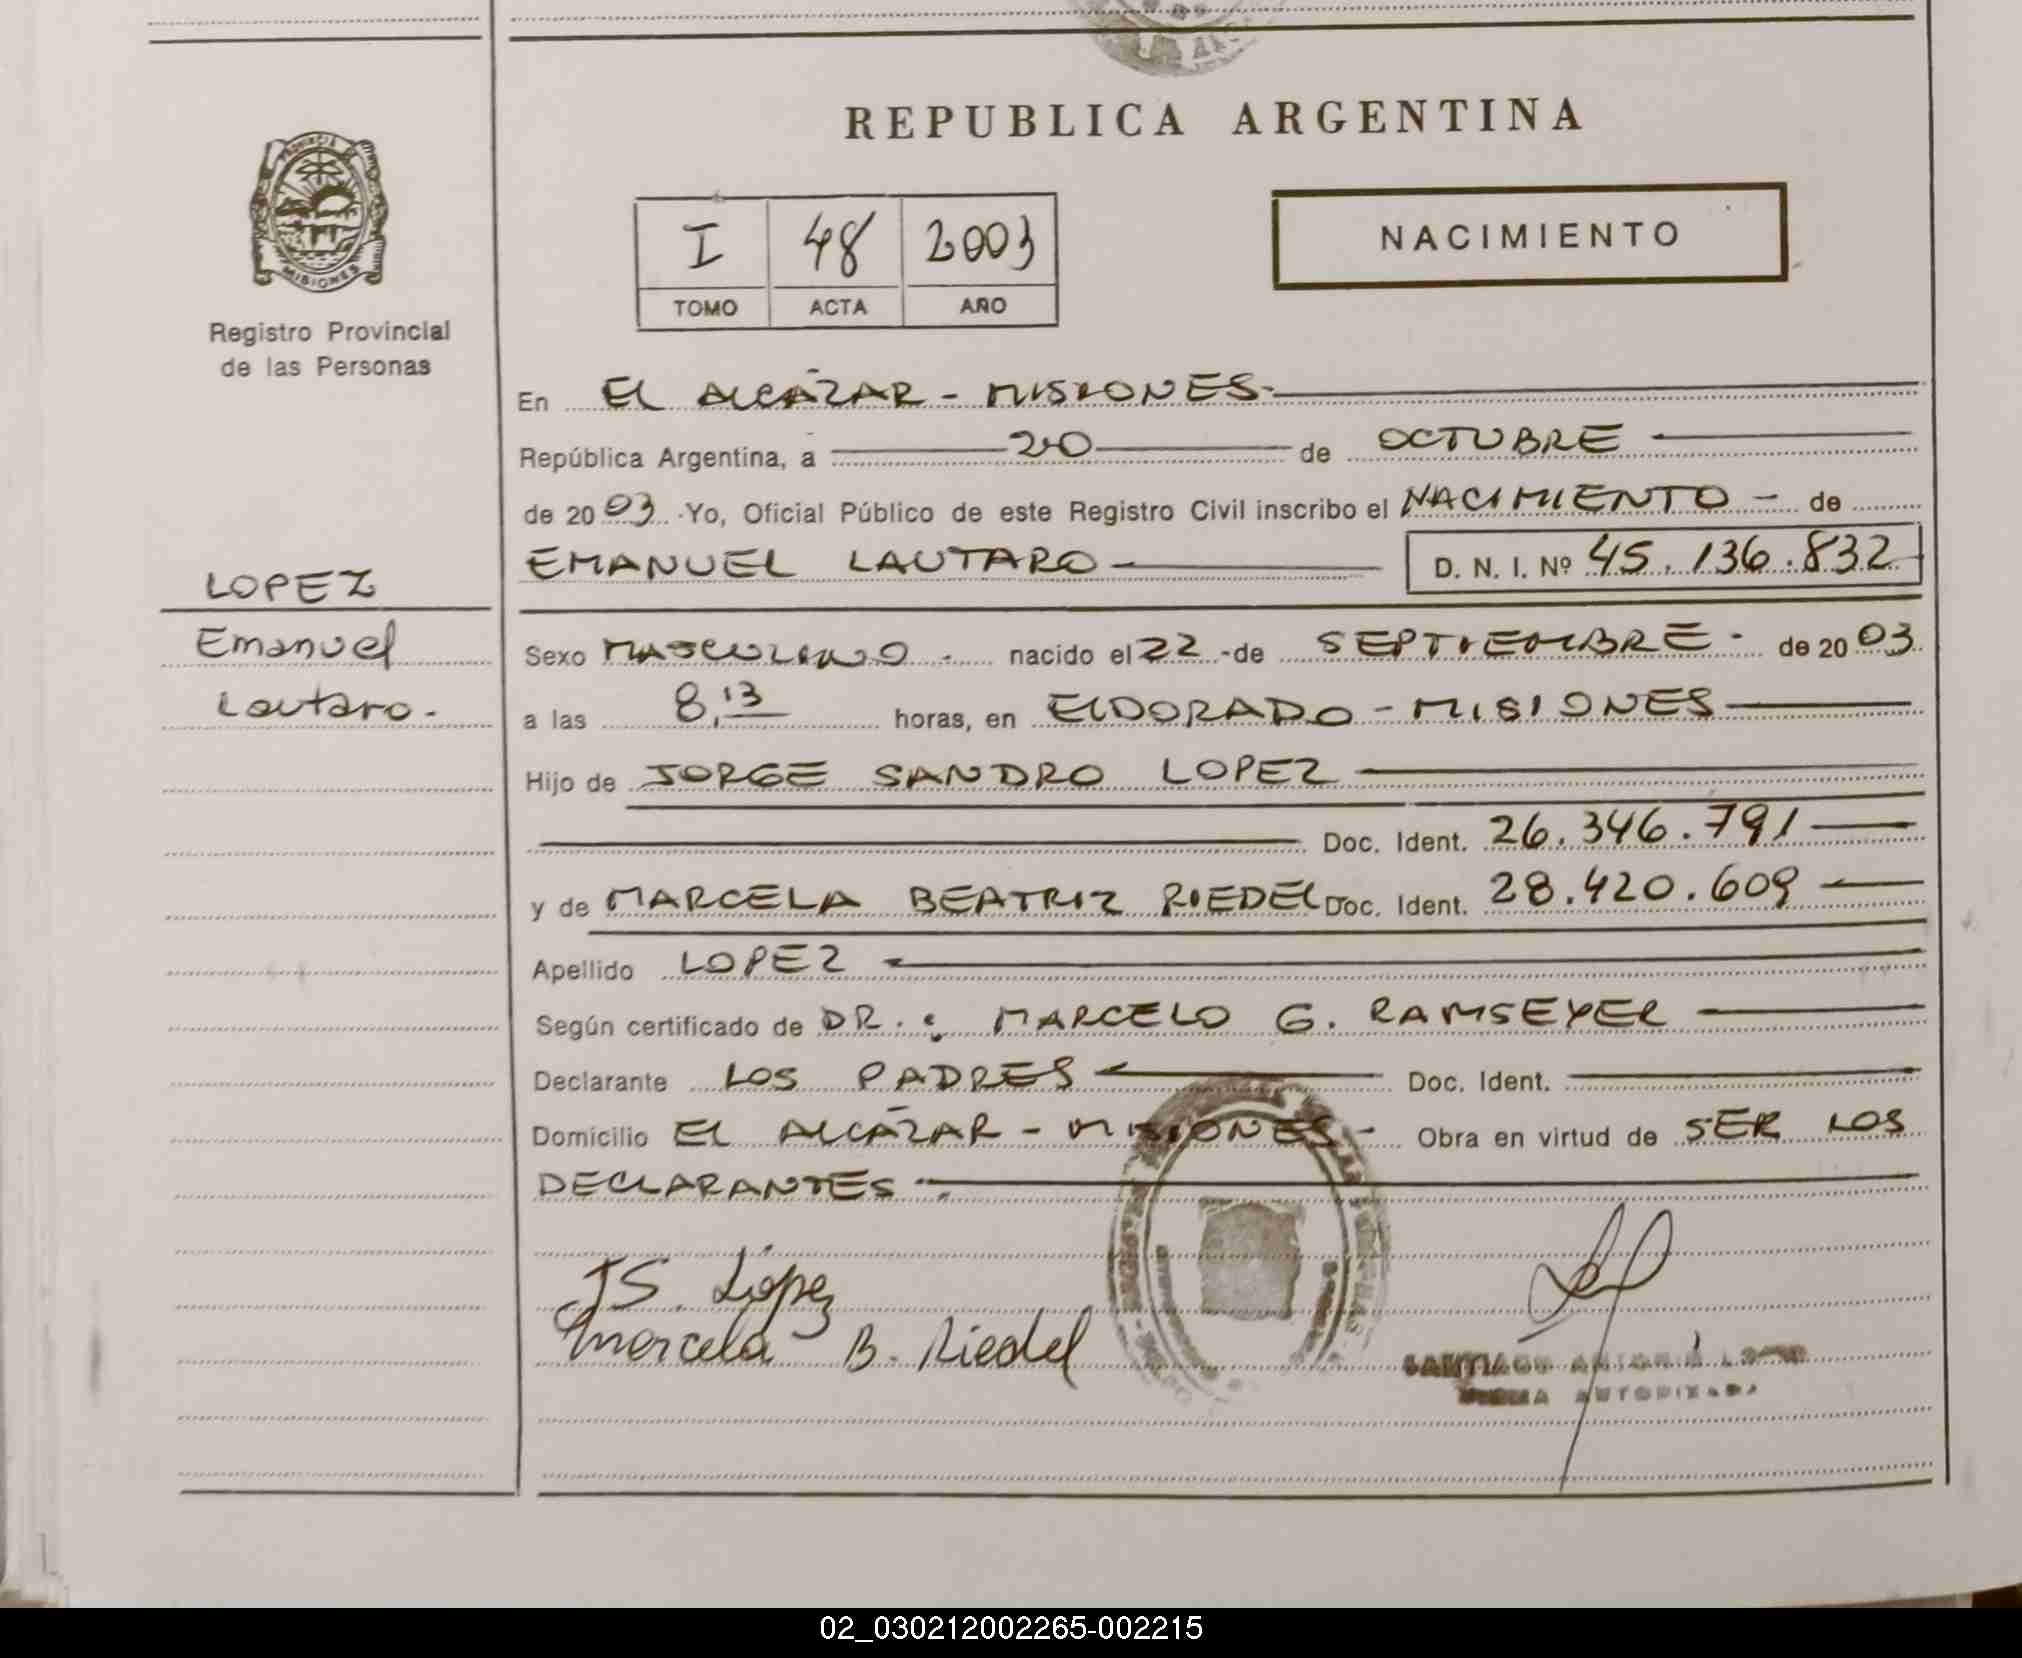 REPUBLICA ARGENTINA
PROVINCIA DE
MISIONES
Registro Provincial
de las Personas
I 48 2003
TOMO ACTA AÑO
NACIMIENTO
En EL ALCÁZAR - MISIONES.
República Argentina, a 20 de OCTUBRE
de 2003. Yo, Oficial Público de este Registro Civil inscribo el NACIMIENTO - de
EMANUEL LAUTARO D. N. I. Nº 45.136.832
LOPEZ
Emanuel
Lautaro.
Sexo MASCULINO. nacido el 22 - de SEPTIEMBRE - de 2003.
a las 8,13 horas, en ELDORADO - MISIONES
Hijo de JORGE SANDRO LOPEZ
Doc. Ident. 26.346.791
y de MARCELA BEATRIZ RIEDEL Doc. Ident. 28.420.609
Apellido LOPEZ
Según certificado de DR.: MARCELO G. RAMSEYER
Declarante LOS PADRES Doc. Ident.
Domicilio EL ALCÁZAR - MISIONES - Obra en virtud de SER LOS
DECLARANTES.
JS. López
Marcela B. Riedel
SANTIAGO
FIRMA AUTORIZADA
02_030212002265-002215